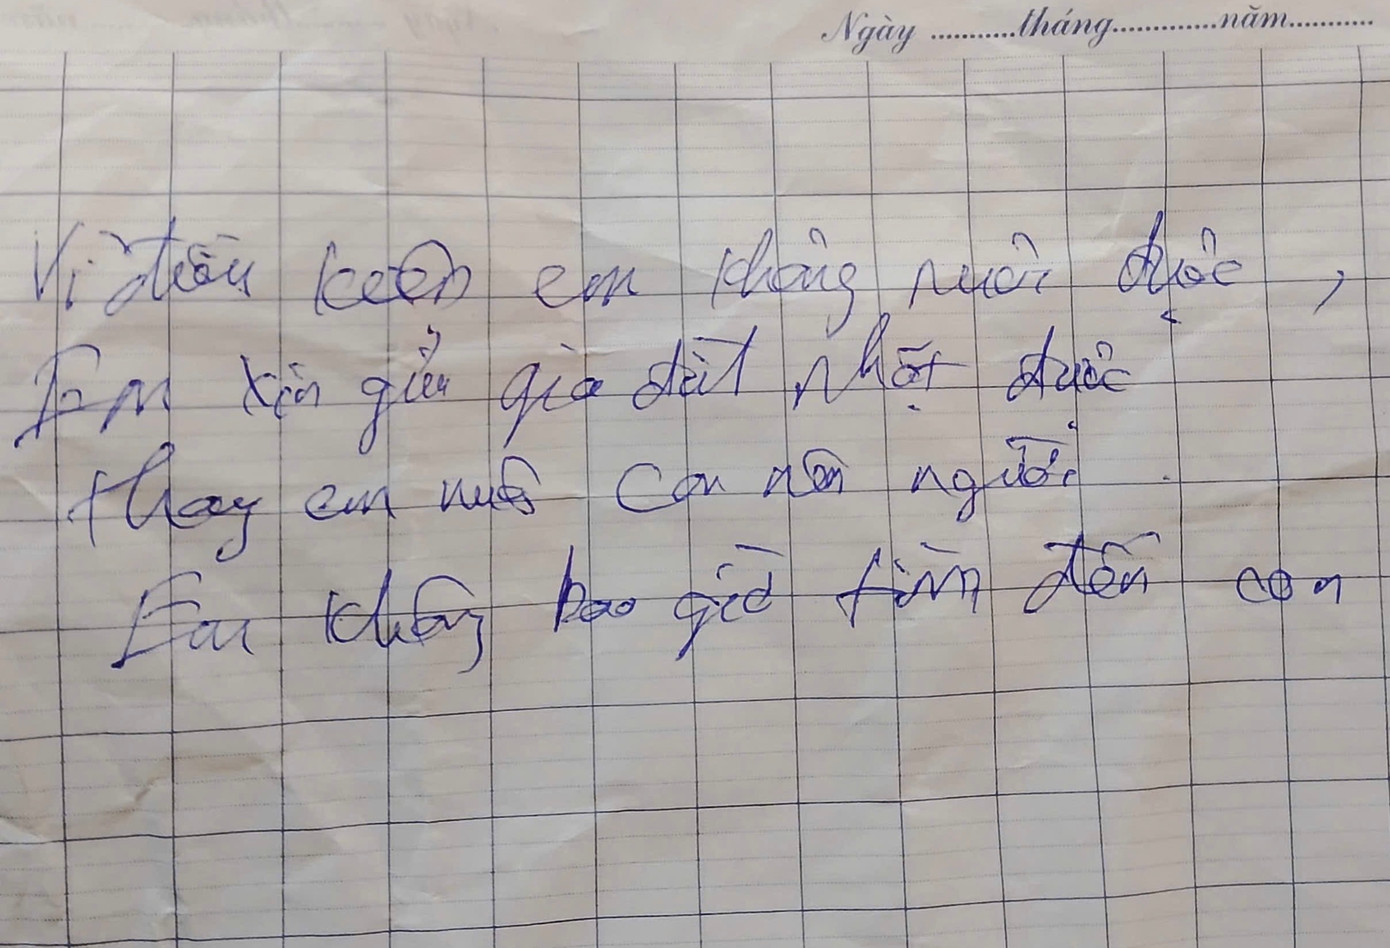 Ngày ..........tháng.............năm...........
Vì điều kiện em không nuôi được ,
Em xin gửi gia đình nhặt được
thay em nuôi con nên người .
Em không bao giờ tìm đến con